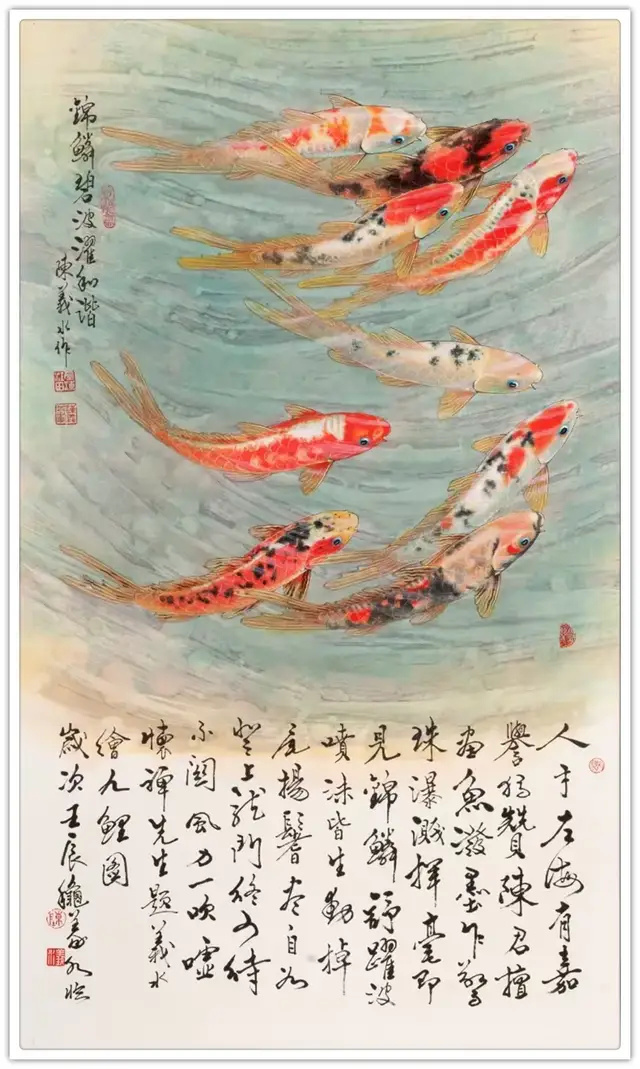 錦鱗碧波濯和諧
陳義水作
人于左海有嘉
譽獨贊陳君擅
畫魚潑墨乍驚
珠瀑濺揮毫即
見錦鱗舒躍波
噴沫皆生動掉
尾揚鬐盡自如
登上龍門終待
不關風力一吹噓
懷禪先生題義水
繪九鯉圖
歲次壬辰龝義水